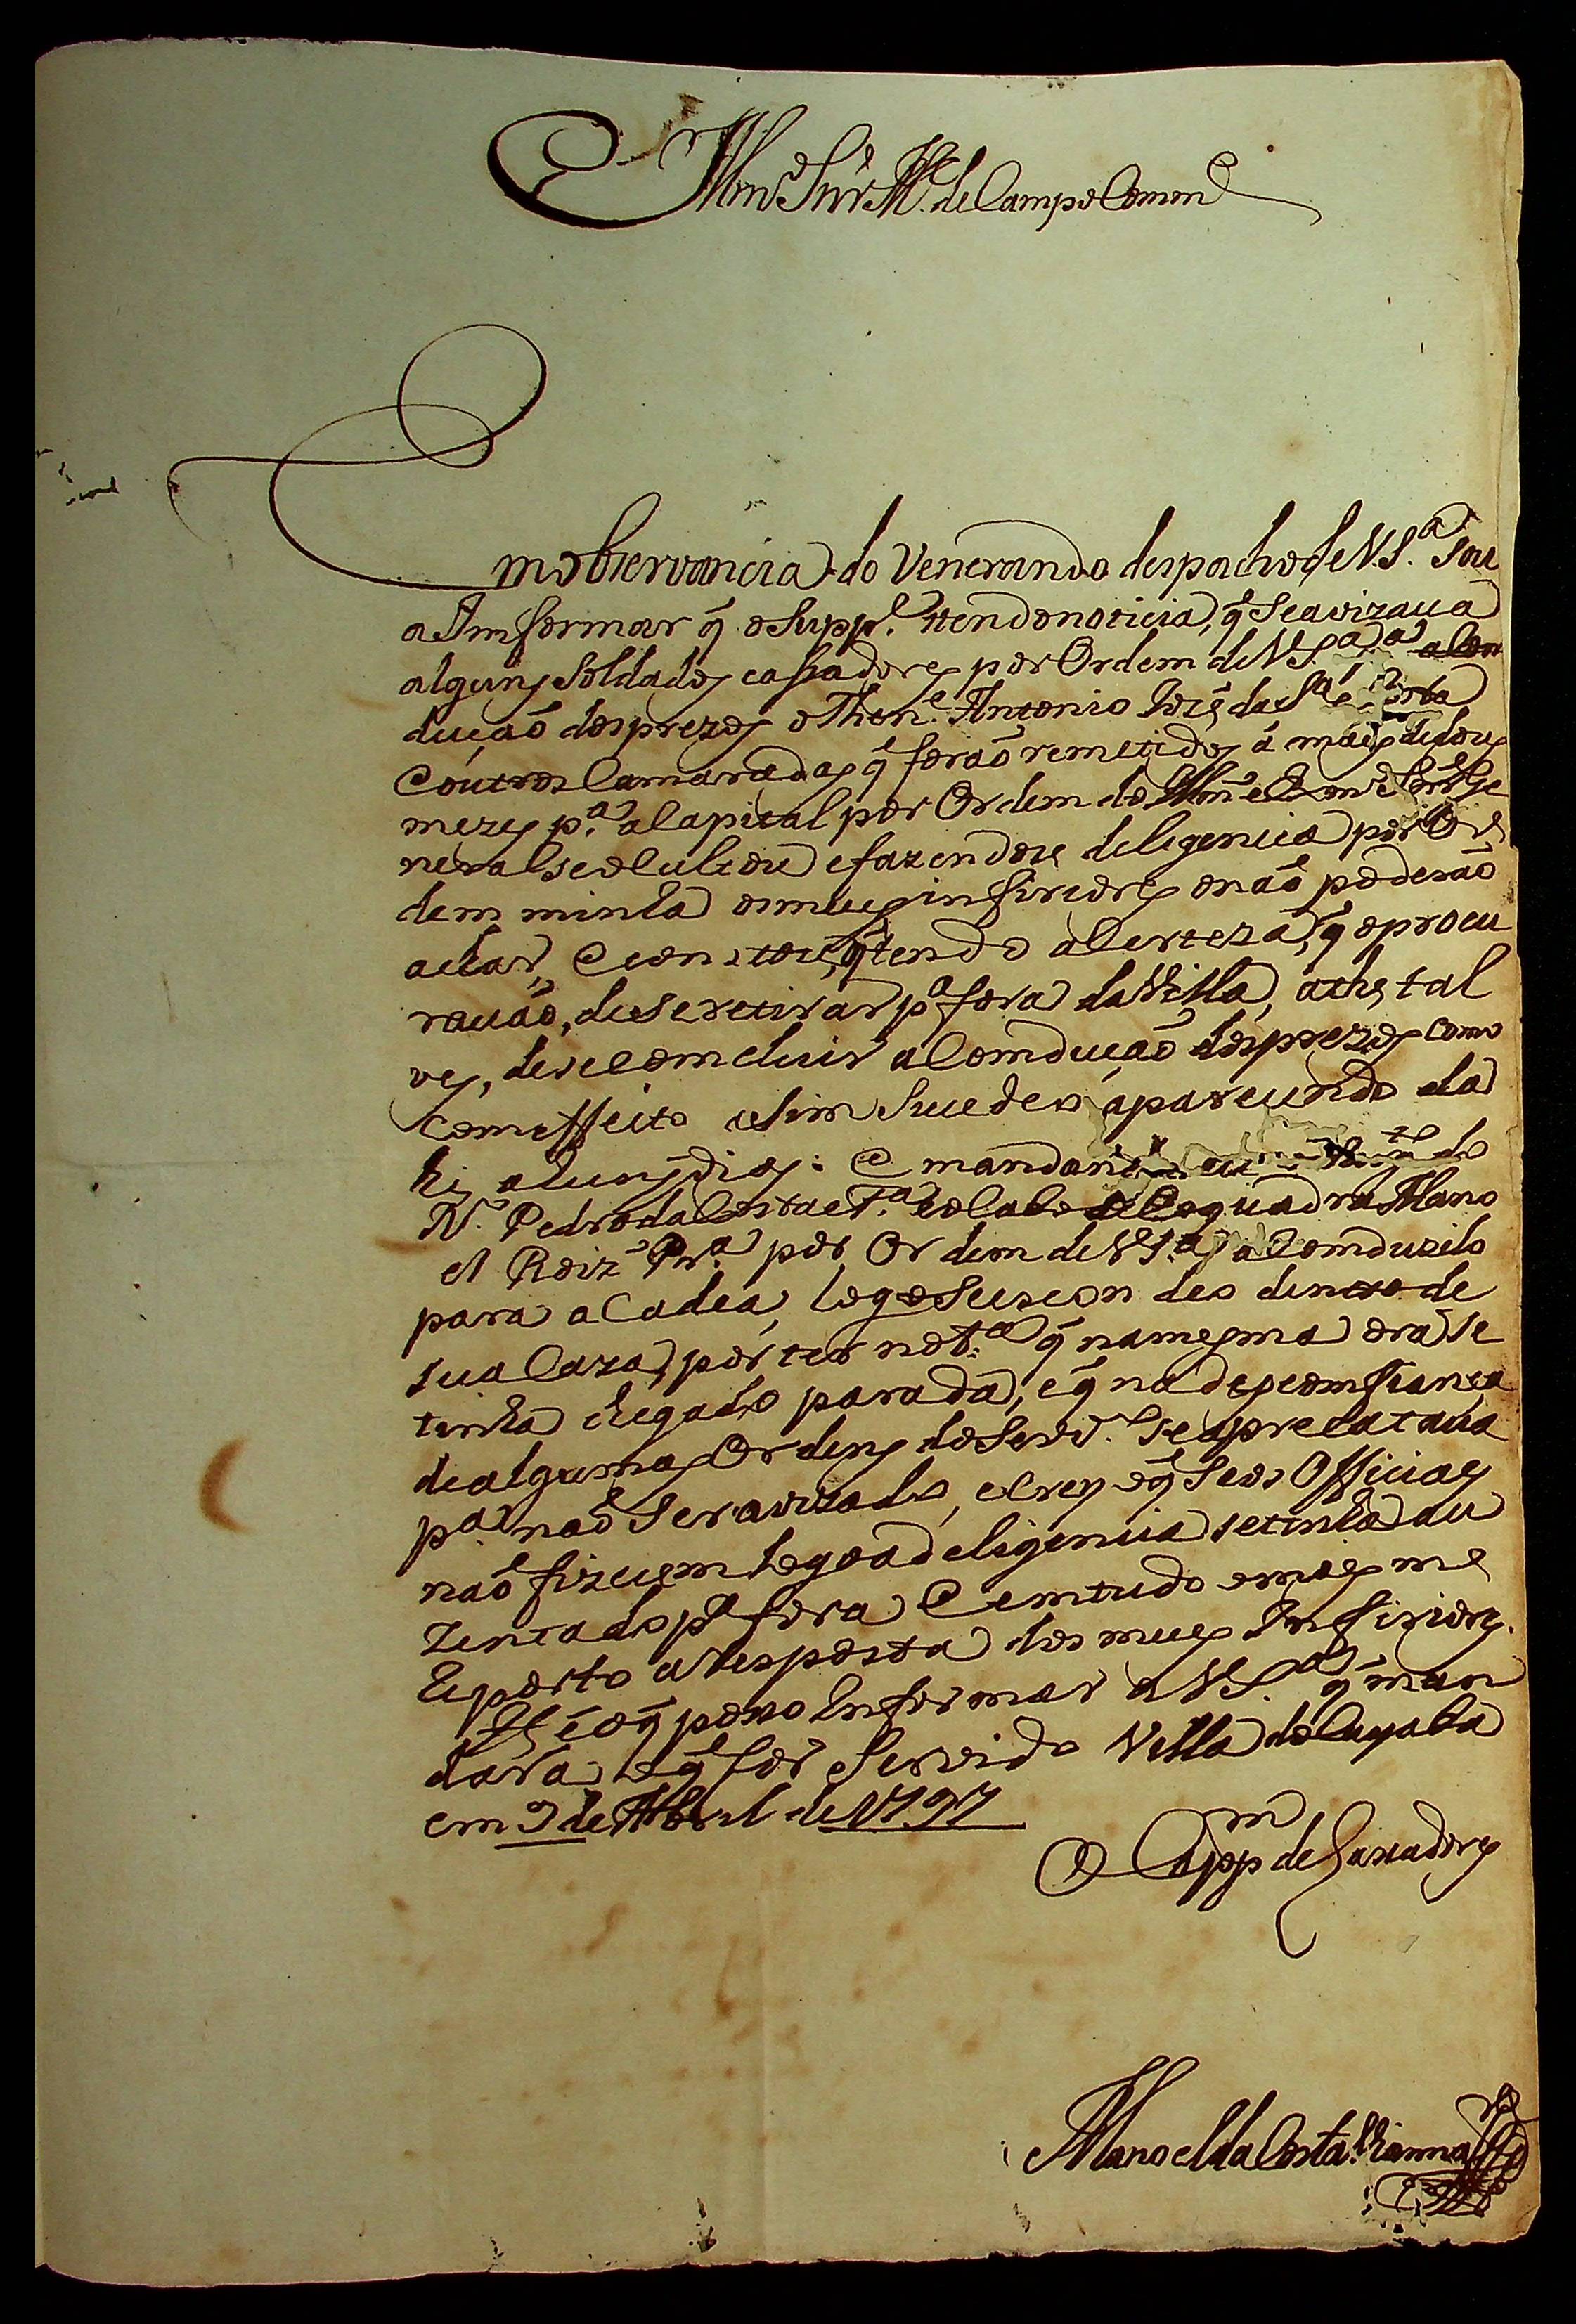 Illmo Snr Me. de Campo Comme
Em observancia do Venerando despacho de V.Sª. Sou
a Imformar q̃ o Suppe. ttendo noticia, q̃ Se avizava
alguns Soldados cassadores por Ordem de V Sª. pª a Con
dução dos prezos o Thene. Antonio Jozê da Sª e
e outros Camaradas q̃ forão remetidos á mais de dous
mezes pª. a Capital por Ordem do Illmo e Exmo Snr Ge
neral se ocultou e fazendose deligencia por Or
dem minha os meus infiriores o não poderão
achar, e constou, q̃ tendo a Certeza, q̃ o procu
ravão, de se retirar pª fora da Villa, athe tal
ves, de se comcluir a Comdução dos prezos como
com effeito asim Sucedeo aparecendo da
hi a huns dias: e mandando eu
N. Pedro da Costa e Fª. e o Cabo de Esquadra Mano
el Roiz Prª. por Ordem de V Sª. a Comduzilo
para a Cadea, logo Se escondeo dentro de
sua Caza, por ter notª. q̃ na mesma ora Se
tinha chegado parada, e q̃ na desconfiança
de algumas Ordens do Servº. Se aprecatava
pª. não Ser avizado, e creyo q̃ Se os Officiaes
não fizecem logo a deligencia se tinha au
zentado pª fora e comtudo o mais me
Reporto a Resposta dos meus Infiriores.
He é o q̃ posso Informar a V S.ª q̃ man
dará o q̃ for Servido Villa do Cuyaba
em 9 de Abril de 1797
O Cappm de Cassadores
Manoel da Costa Vianna